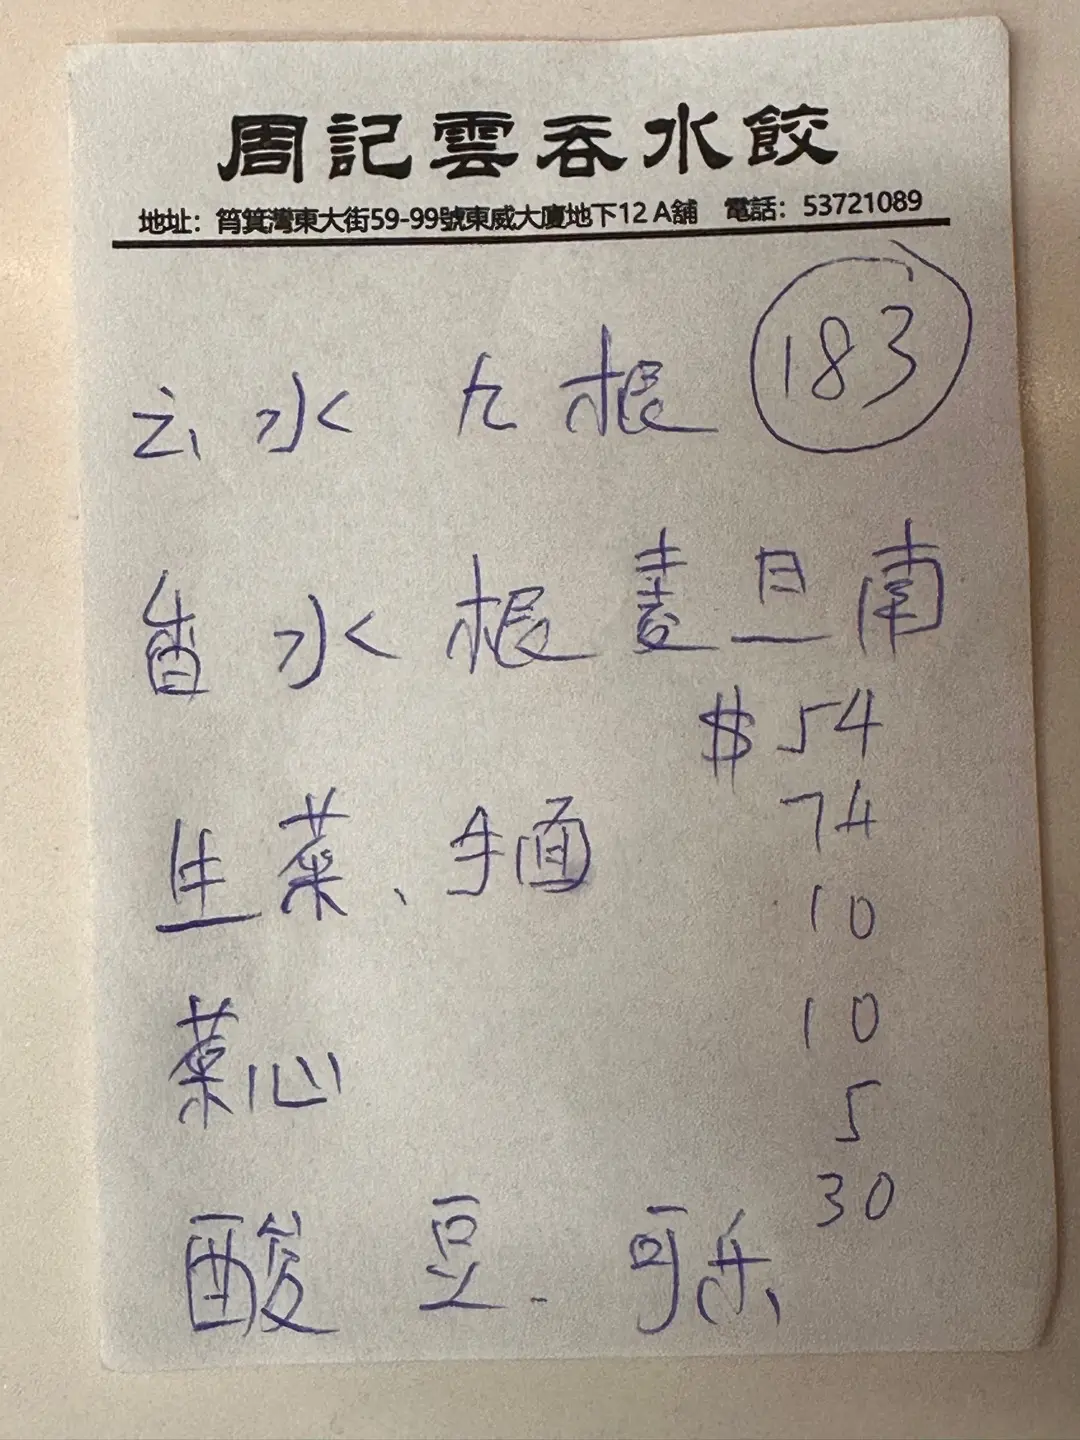 周記雲吞水餃
地址：筲箕灣東大街59-99號東威大廈地下12 A舖 電話：53721089
183
云水 九根
香水根麦旦南
$54
74
生菜、手面
10
10
菜心
5
30
酸 豆 - 可乐